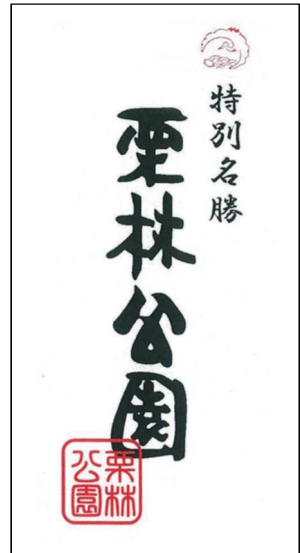 特別名勝
栗林公園
栗林
公園